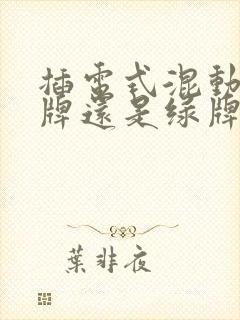 插電式混動
牌還是綠牌
葉非夜